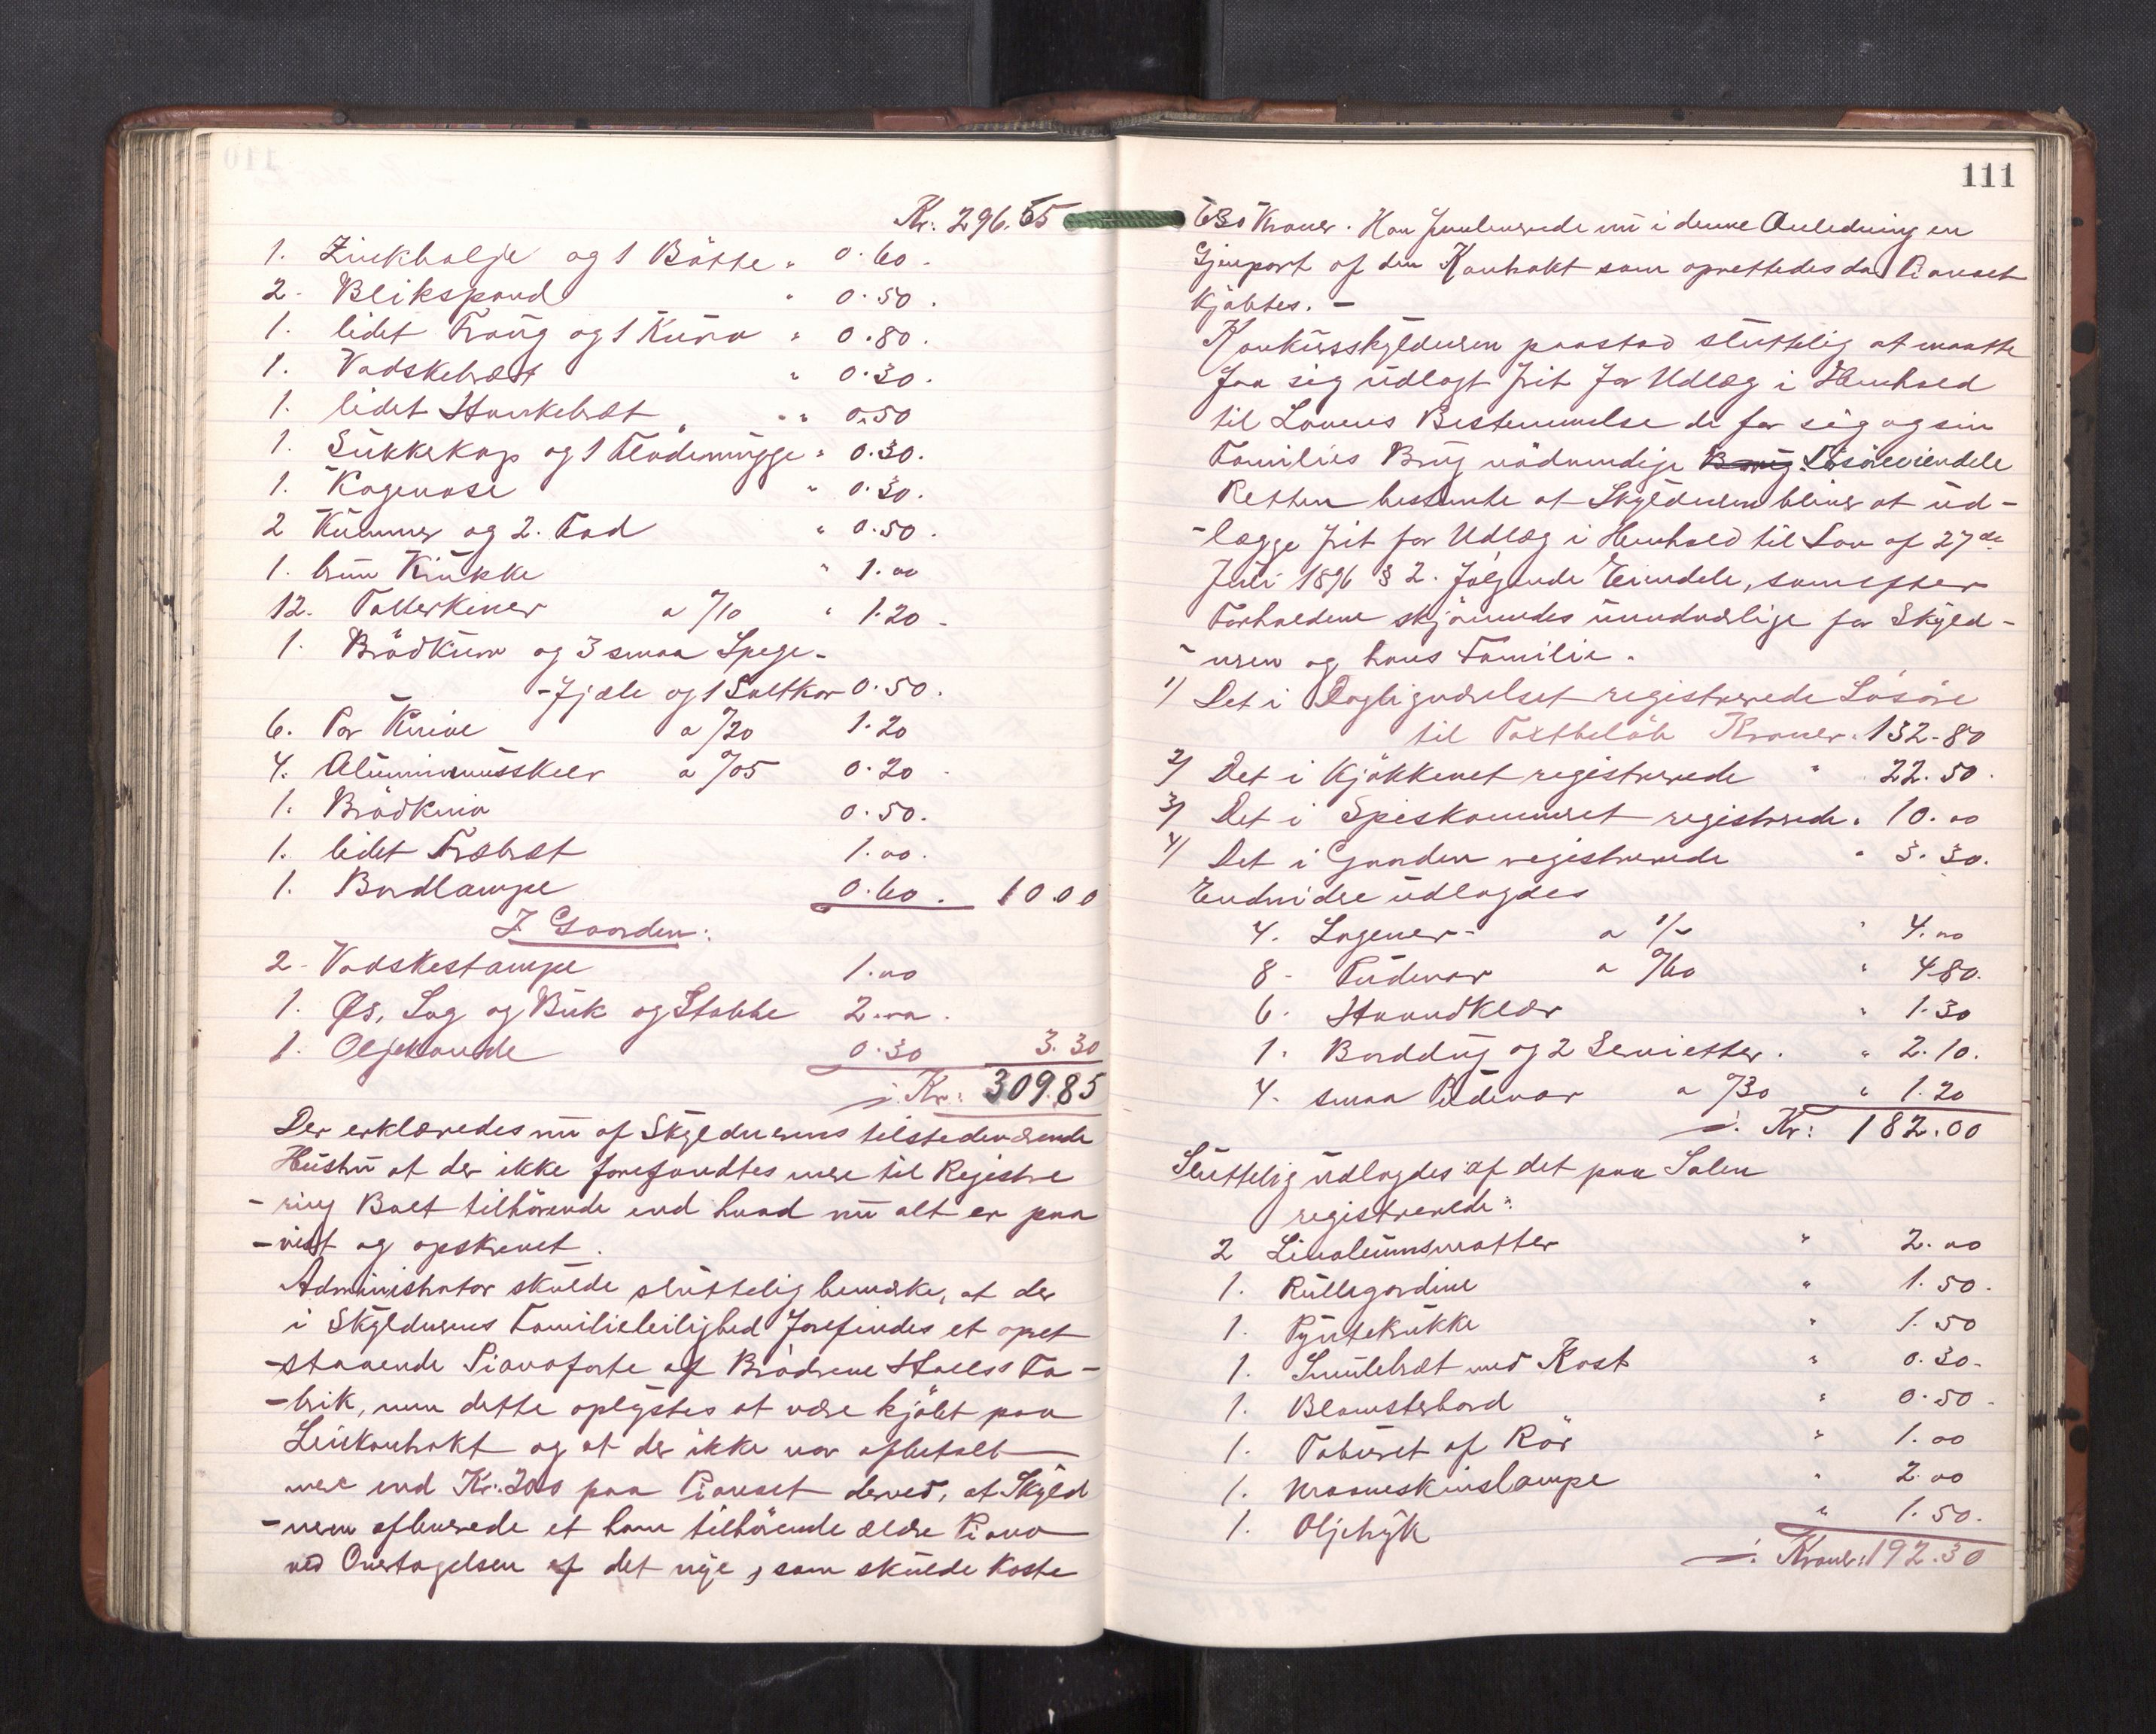 Kr: 296.55
1. Zinkbalje og 1 Bötte " 0.60.
2. Blikspand " 0.50.
1. lidet Traug og 1 Kurv " 0.80.
1. Vadskebræt " 0.30.
1. lidet Stærkebræt " 0.50
1. Sukkekop og 1 Flödemugge " 0.30.
1. Kagevase " 0.30.
2 Kummer og 2. Fad " 0.50.
1. brun Krukke " 1.00
12. Tallerkener a 0/10 " 1.20
1. Brödkurv og 3 smaa Spege-
-fjæle og 1 Saltkar 0.50.
6. Par Knive a 0/20 1.20
4. Aluminiumsskeer a 0/05 0.20
1. Brödkniv 0.50.
1. lidet Træbræt 1.00.
1. Bordlampe 0.60. 10.00
I Gaarden:
2. Vadskestampe 1.00
1. Øs, Sag og Buk og Stabbe 2.00.
1. Oljekande 0.30 3.30
i. Kr: 309.85
Der erklæredes nu af Skyldnerens tilstedeværende
Hustru at der ikke forefandtes mere til Registre
-ring Boet tilhörende end hvad nu alt er paa
-vist og opskrevet.
Administrator skulde sluttelig bemærke, at der
i Skyldnerens Familieleilighed forefindes et opret
-staaende Pianoforte af Brödrene Halls Fa-
-brik, men dette oplystes at være kjöbt paa
Leiekontrakt og at der ikke var afbetalt
mere end Kr. 200 paa Pianoet derved, at Skyld
-neren afleverede et ham tilhörende ældre Piano
ved Overtagelsen af det nye, som skulde koste
111
630 Kroner. Han fremleverede nu i denne Anledning en
Gjenpart af den Kontrakt som oprettedes da Pianoet
kjöbtes. -
Konkursskyldneren paastod sluttelig at maatte
faa sig udlagt frit for Udlæg i Henhold
til Lovens Bestemmelse de for sig og sin
Families Brug nödvendige Brug Lösöreeiendele
Retten bestemte at Skyldneren bliver at ud-
-lægge frit for Udlæg i Henhold til Lov af 27de
Juli 1896 § 2. fölgende Eiendele, som efter
Forholdene skjönnedes uundværlige for Skyld-
-neren og hans Familie.
1) Det i Dagligværelset registrerede Lösöre
til Taxtbelöb Kroner. 132.80
2) Det i Kjökkenet registrerede " 22.50.
3) Det i Spiskammeret registrerede " 10.00
4) Det i Gaarden registrerede " 3.30.
Endvidre udlagdes
4. Lagener a 1/- " 4.00
8. Pudevar a 0/60 " 4.80.
6. Haandklær " 1.30
1. Borddug og 2 Servietter. " 2.10.
4. smaa Pudevar a 0/30 " 1.20
i. Kr: 182.00
Sluttelig udlagdes af det paa Salen
registrerede:
2 Linoleumsmatter " 2.00
1. Rullegardine " 1.50.
1. Pyntekrukke " 1.50
1. Smulebræt med Kost " 0.30.
1. Blomsterbord " 0.50.
1. Taburet af Rör " 1.00
1. Maaneskinslampe " 2.00
1. Oljetryk " 1.50.
i. Kroner: 192.30